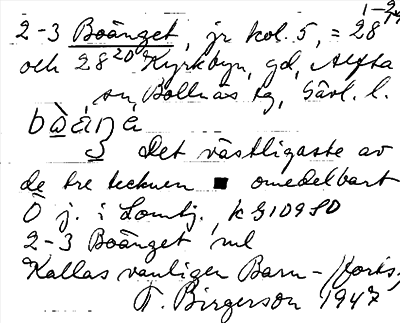 2-3 Boänget, jr kol. 5, = 28
och 28²⁰ Kyrkbyn, gd, Alfta
sn, Bollnäs tg, Gävl. l.
Det västligaste av
de tre tecknen ■ omedelbart
Ö j. i Lomtj.,
2-3 Boänget ml
Kallas vanligen Barn- (forts.)
F. Birgerson 1947